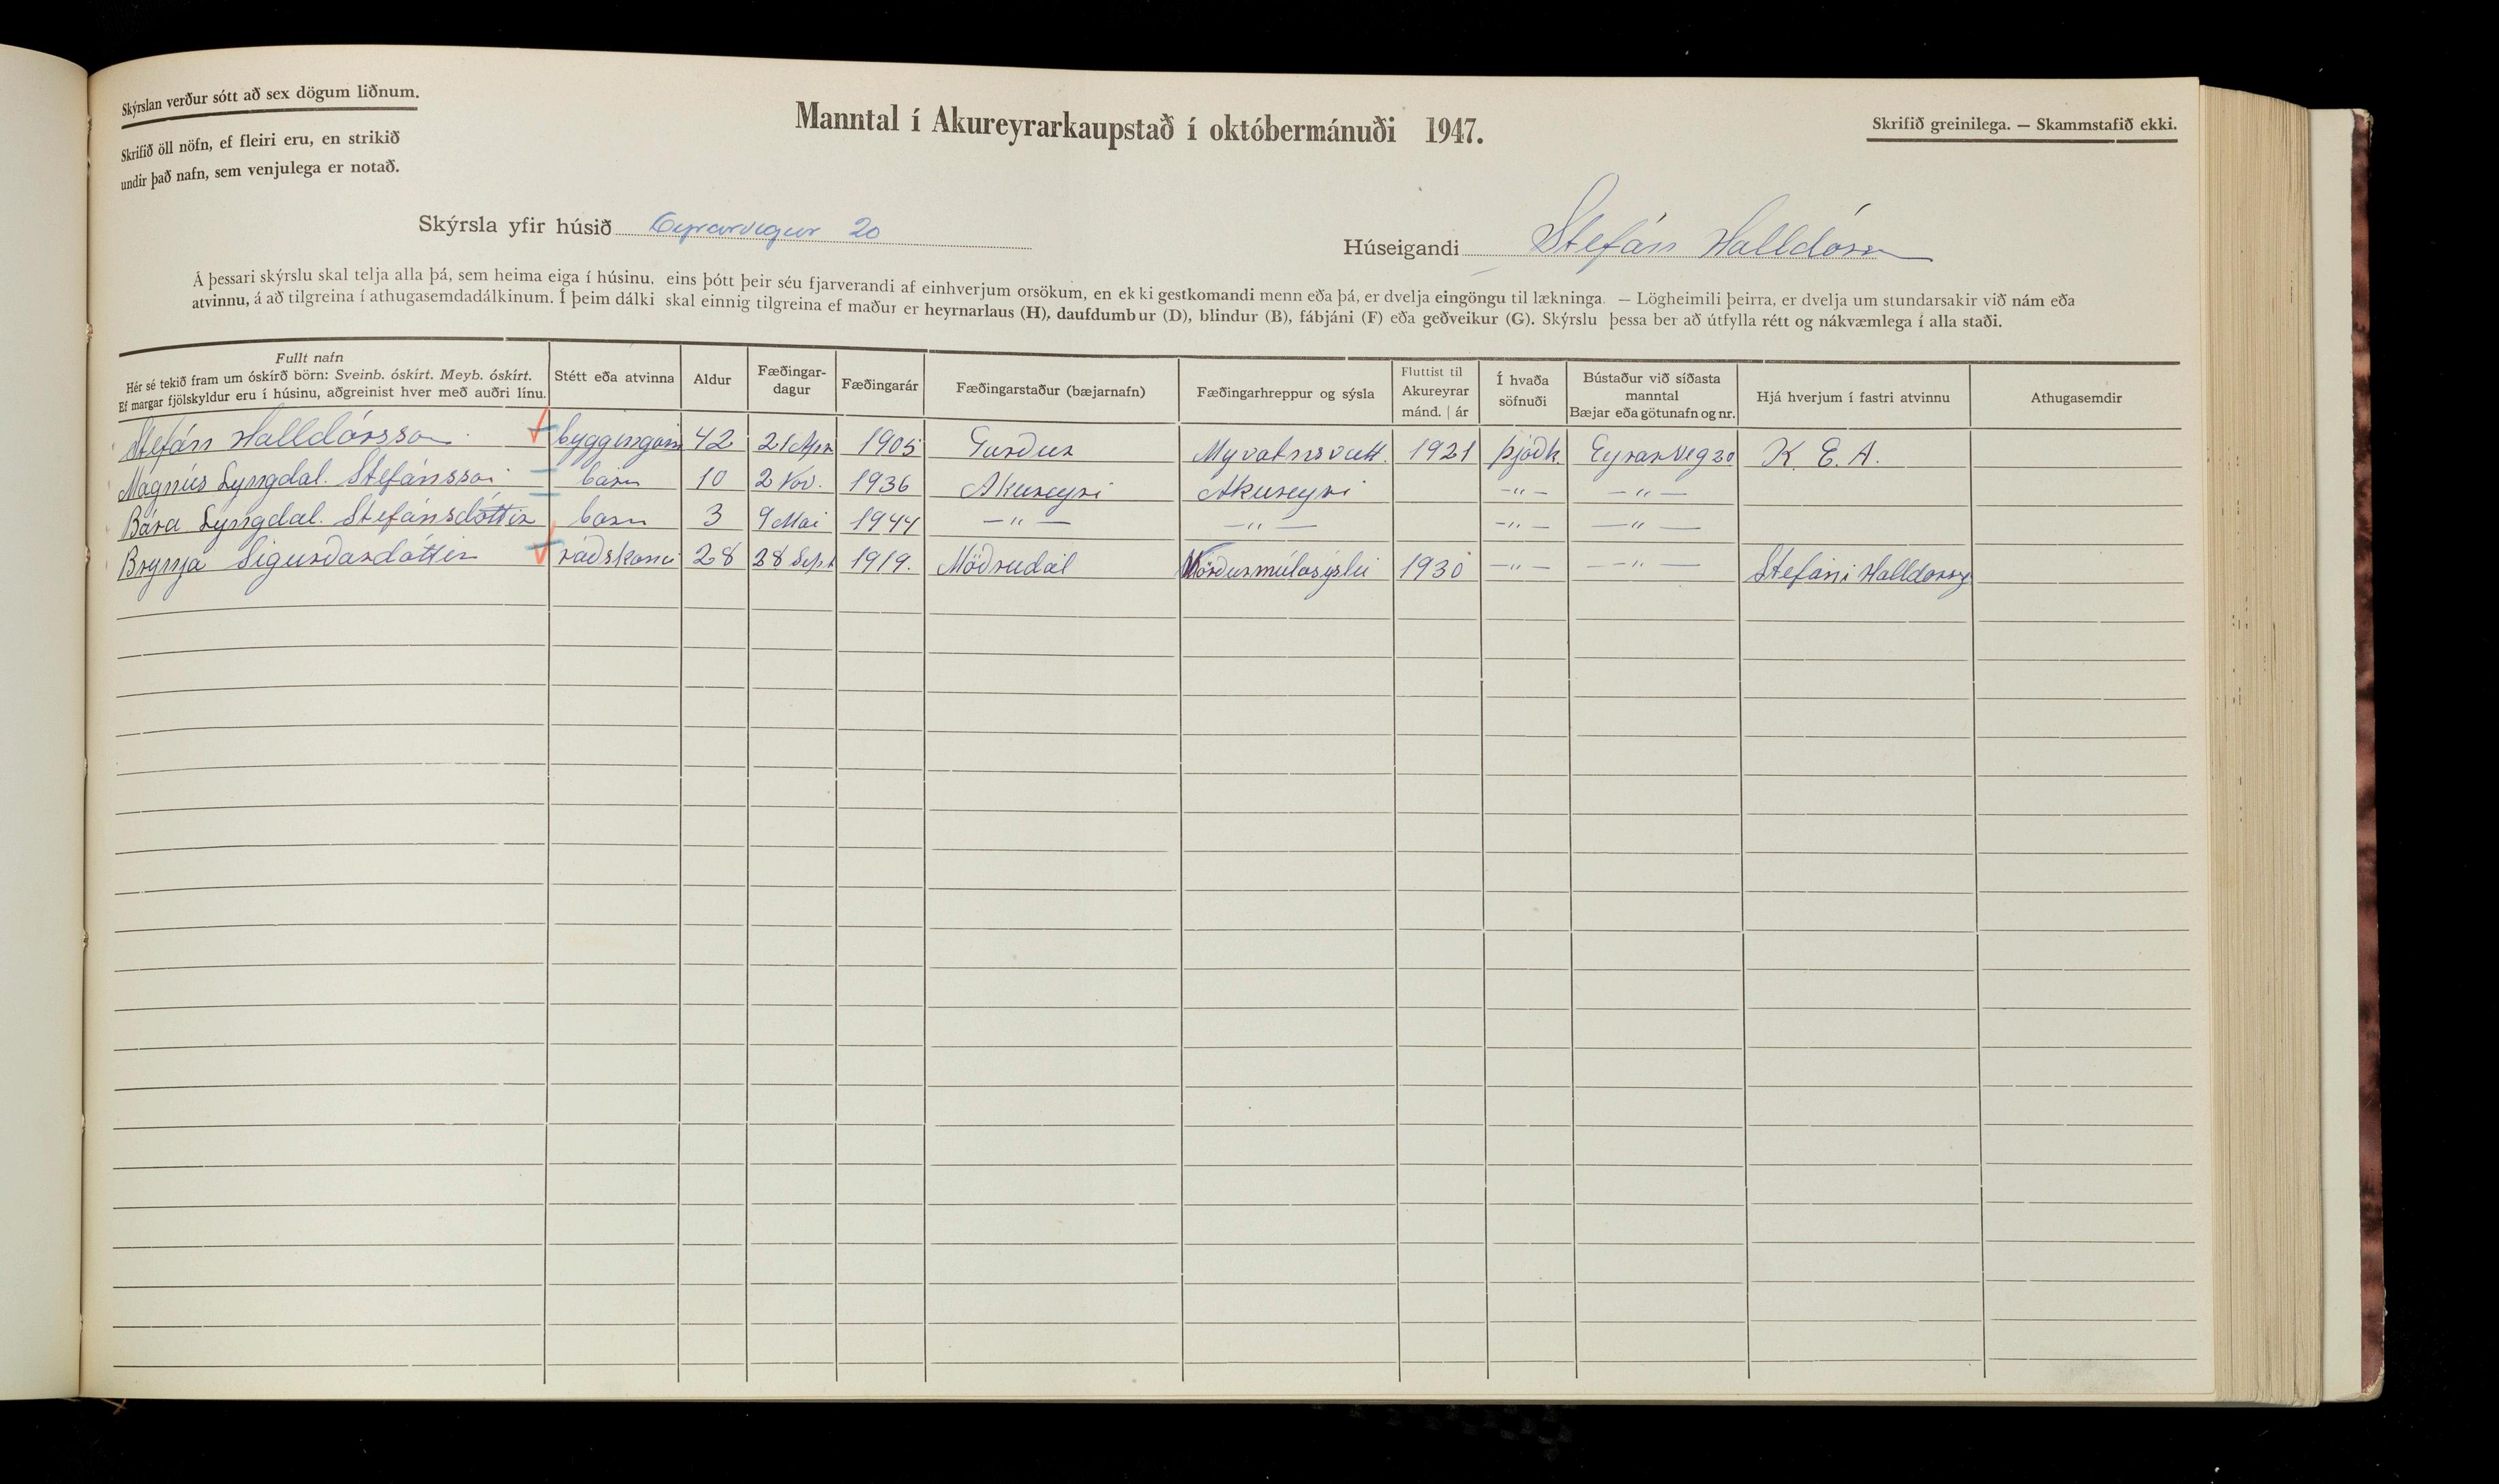 Skýrslan verður sótt að sex dögum liðnum.
Skrifið öll nöfn, ef fleiri eru, en strikið
undir það nafn, sem venjulega er notað.
Manntal í Akureyrarkaupstað í októbermánuði 1947.
Skrifið greinilega. — Skammstafið ekki.
Skýrsla yfir húsið Eyrarvegur 20
Húseigandi Stefán Halldórsson
Á þessari skýrslu skal telja alla þá, sem heima eiga í húsinu, eins þótt þeir séu fjarverandi af einhverjum orsökum, en ekki gestkomandi menn eða þá, er dvelja eingöngu til lækninga. — Lögheimili þeirra, er dvelja um stundarsakir við nám eða
atvinnu, á að tilgreina í athugasemdadálkinum. Í þeim dálki skal einnig tilgreina ef maður er heyrnarlaus (H), daufdumbur (D), blindur (B), fábjáni (F) eða geðveikur (G). Skýrslu þessa ber að útfylla rétt og nákvæmlega í alla staði.
Fullt nafn
Hér sé tekið fram um óskírð börn: Sveinb. óskírt. Meyb. óskírt.
Ef margar fjölskyldur eru í húsinu, aðgreinist hver með auðri línu.
Stétt eða atvinna
Aldur
Fæðingar-
dagur
Fæðingarár
Fæðingarstaður (bæjarnafn)
Fæðingarhreppur og sýsla
Fluttist til
Akureyrar
mánd. | ár
Í hvaða
söfnuði
Bústaður við síðasta
manntal
Bæjar eða götunafn og nr.
Hjá hverjum í fastri atvinnu
Athugasemdir
Stefán Halldórsson 42 21 Apr 1905 Garður 1921 þjóðk. Eyrarveg 20 K. E. A.
Magnús Lyngdal. Stefánsson barn 10 2 Nov. 1936 Akureyri Akureyri —"— —"—
Bára Lyngdal. Stefánsdóttir barn 3 9 Mai 1944 —"— —"— —"— —"—
Brynja Sigurðardóttir ráðskona 28 28 Sept 1919. Möðrudal Norðurmúlasýslu 1930 —"— —"— Stefáni Halldorss